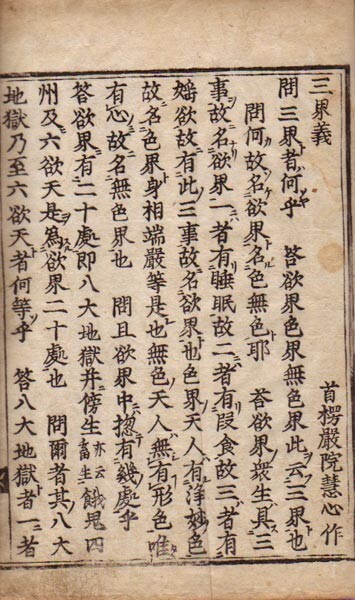 三界義　首楞嚴院慧心作
問三界者何乎　答欲界色界無色界此云三界也
問何故名欲界名色無色耶　答欲界衆生具三
事故名欲界一者有睡眠故二者有段食故三者有
婬欲故有此三事故名欲界也色界天人有淨妙色
故名色界身相端嚴等是也無色天人無有形色唯
有心故名無色界也　問且欲界中惣有幾處乎
答欲界有二十處即八大地獄并傍生亦云畜生餓鬼四
州及六欲天是為欲界二十處也　問爾者其八大
地獄乃至六欲天者何等乎　答八大地獄者一者